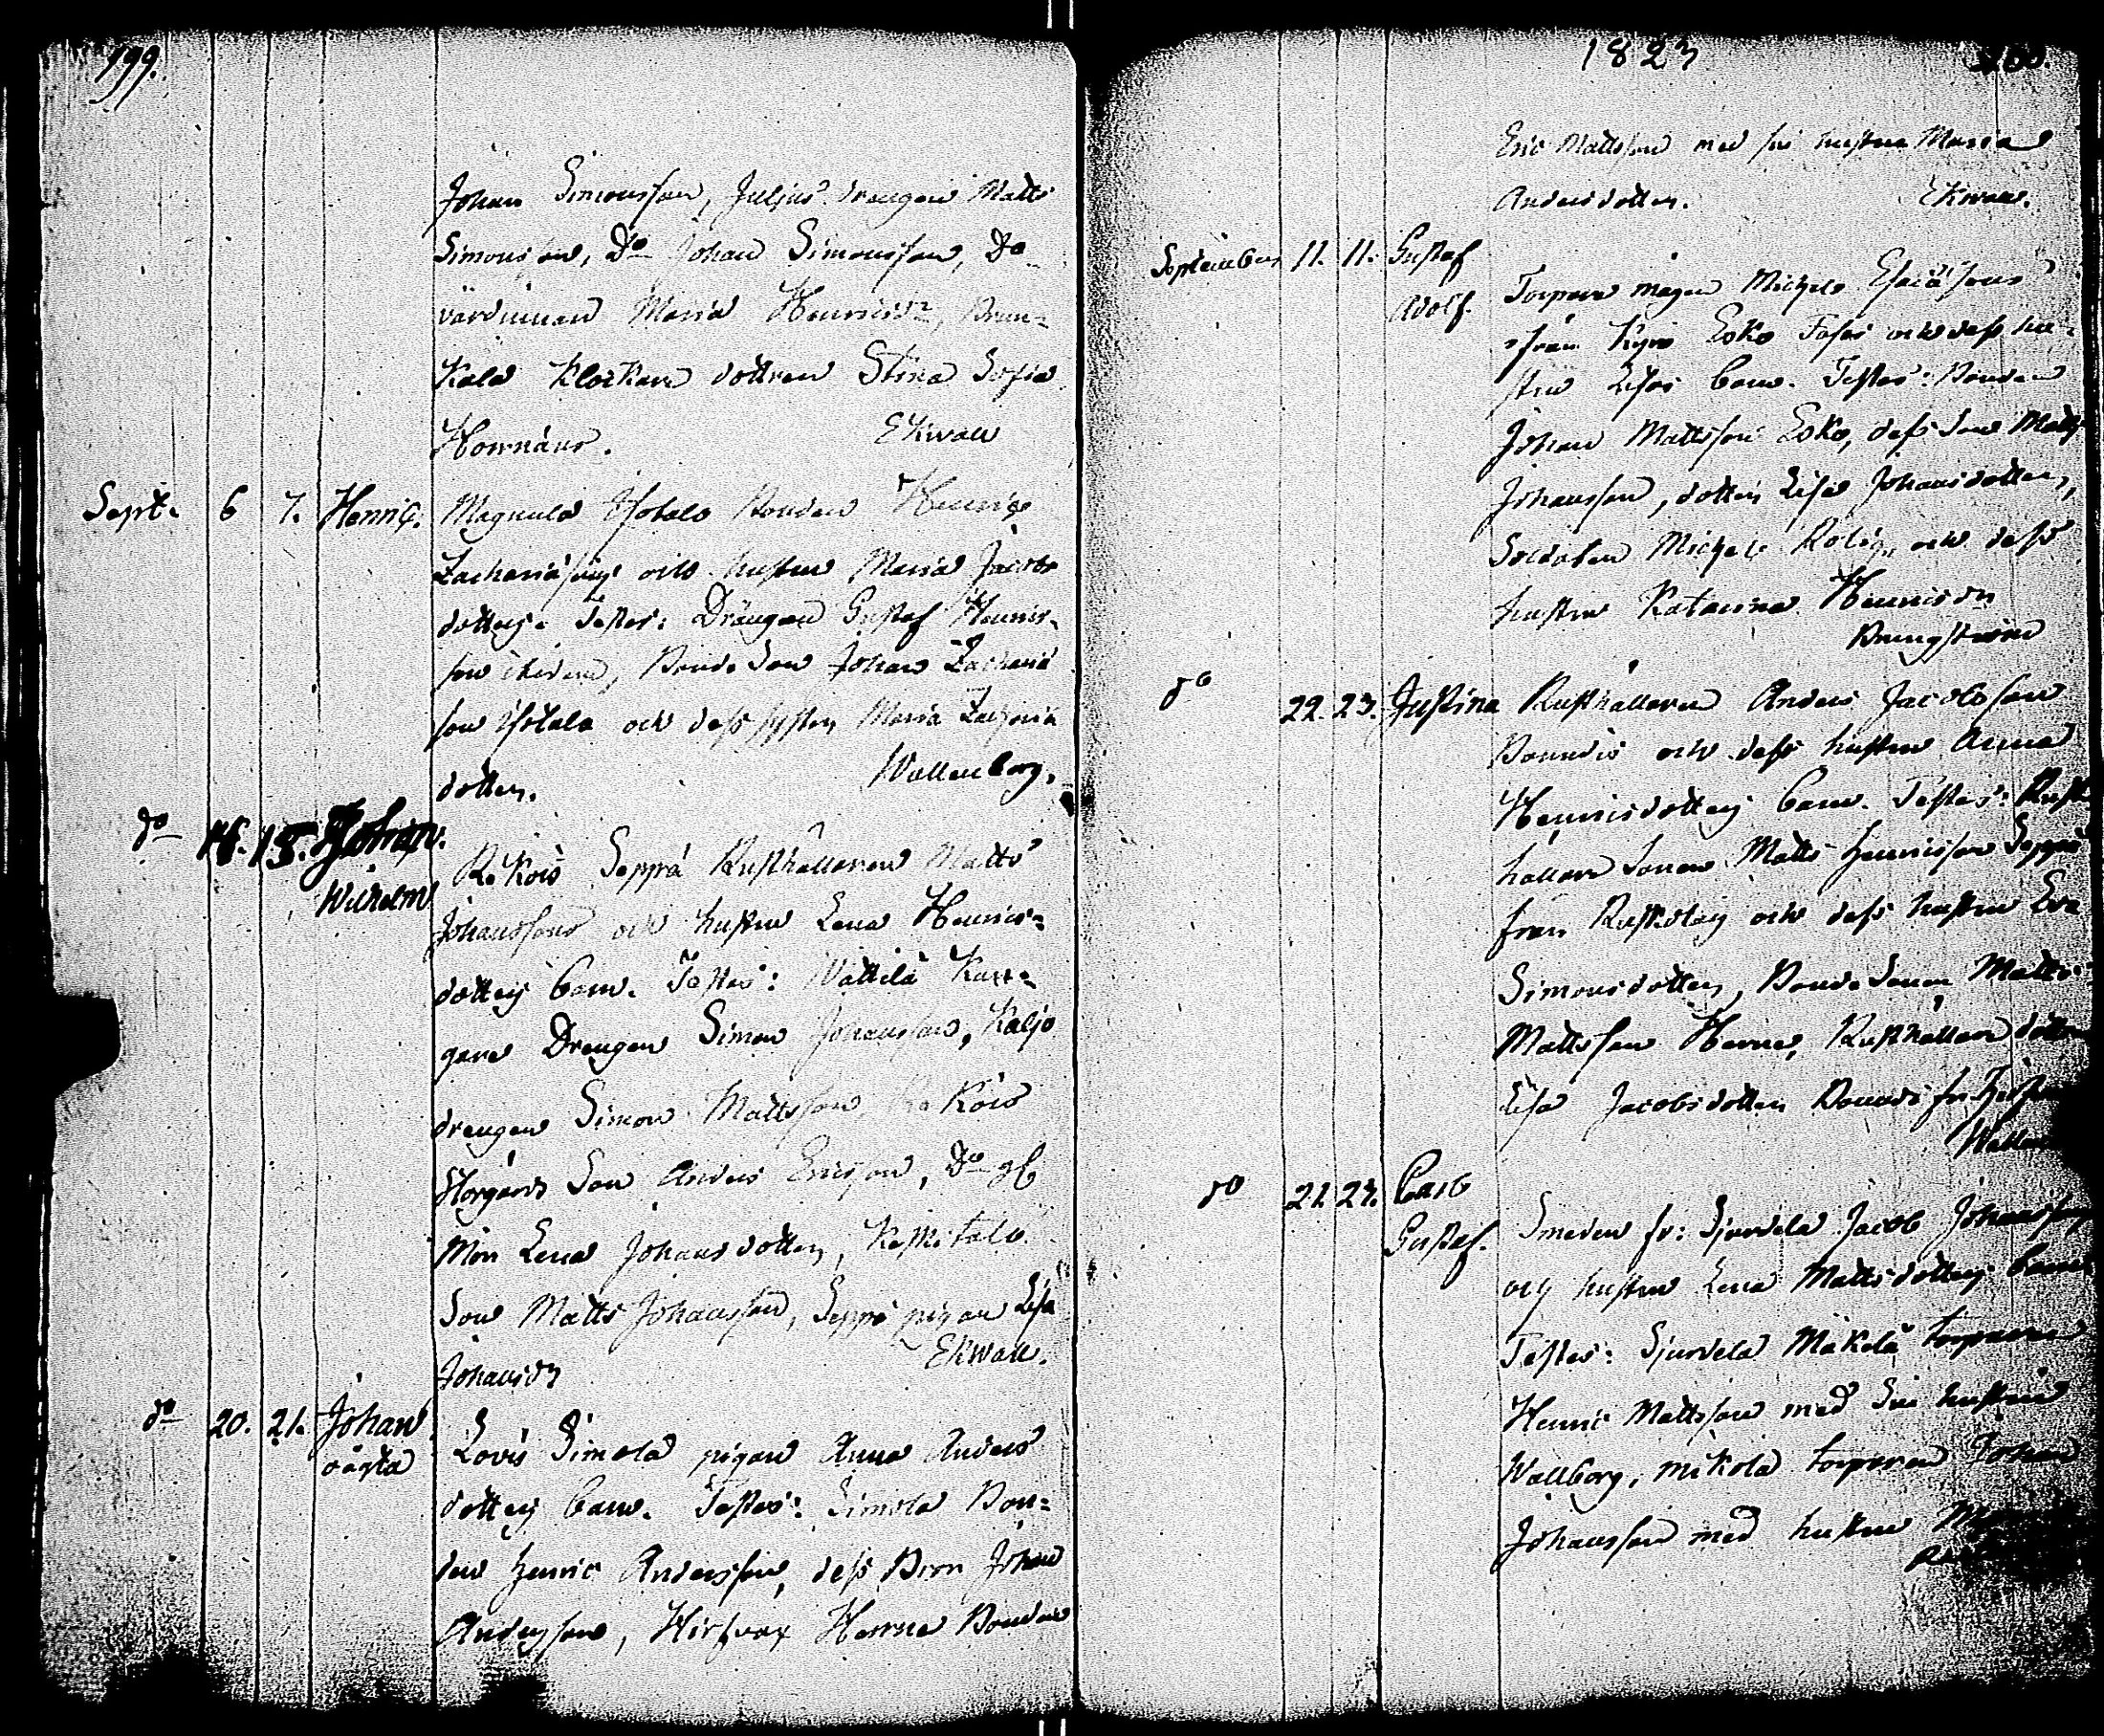 199.
Johan Simonsson, Juljus drengen Matts
Simonsson, Do Johan Simonsson, Do
värdinnan Maria Henricsdr, Prun-
kala Klockare dottren Stina Sofia
Hornæus. Ekwall
Sept. 6 7. Henric. Magnula Isotalo Bonden Henric
Zachariæsons och hustru Maria Jacobs
dotters. Testes: Drängen Gustaf Henrics-
son ibidem, Bonde Son Johan Zachariæ
son Isotalo och dess syster Maria Zachariæ
dotter. Wallenborg.
do 15. Johan
Wilhelm Rekois Seppä Rusthållaren Matts
Johanssons och hustru Lena Henrics-
dotters barn. Testes: Wattila Karr-
gare Drengen Simon Johansson,
drengen Simon Mattsson
Son Anders Ericsson, Do
Lena Johansdotter,
Son Matts Johansson, Seppä pigan Lisa
Johansdr Ekwall.
do 20. 21. Johan
oägta Lovis Simola pigan Anna Anders
dotters barn. Testes: Simola Bon-
den Henric Andersson, dess Bror Johan
Andersson, Hirsvox Herme Bonden
1823 200.
Eric Mattsson med sin hustru Maria
Andersdotter. Ekwall.
September 11. 11. Gustaf
Adolf. Torpare mågen Michels Esaiæsons
från Kyro Esko och dess hu-
stru Lisas barn. Testes: Bonden
Johan Mattsson Esko, dess Son Matts
Johansson, dotter Lisa Johansdotter,
Soldaten Michel Rolig, och dess
hustru Katarina Henricsdr
Bergström
do 22. 23. Justina Rusthållaren Anders Jacobsson
och dess hustru Anna
Henricsdotters barn. Testes: Rust
hållare Sonen Matts Henricsson Seppä
från och dess hustru Eva
Simonsdotter, Bonde Sonen Matts
Mattsson Herme, Rusthållare dotter
Lisa Jacobsdotter
do 21. 23. Carl
Gustaf. Smeden fr: Sjurvela Jacob Johansson
och hustru Lena Mattsdotters barn
Testes: Sjurvela Mäkelä torparen
Henric Mattsson med Sin hustru
Wallborg, Mikola torparen Johan
Johansson med hustru